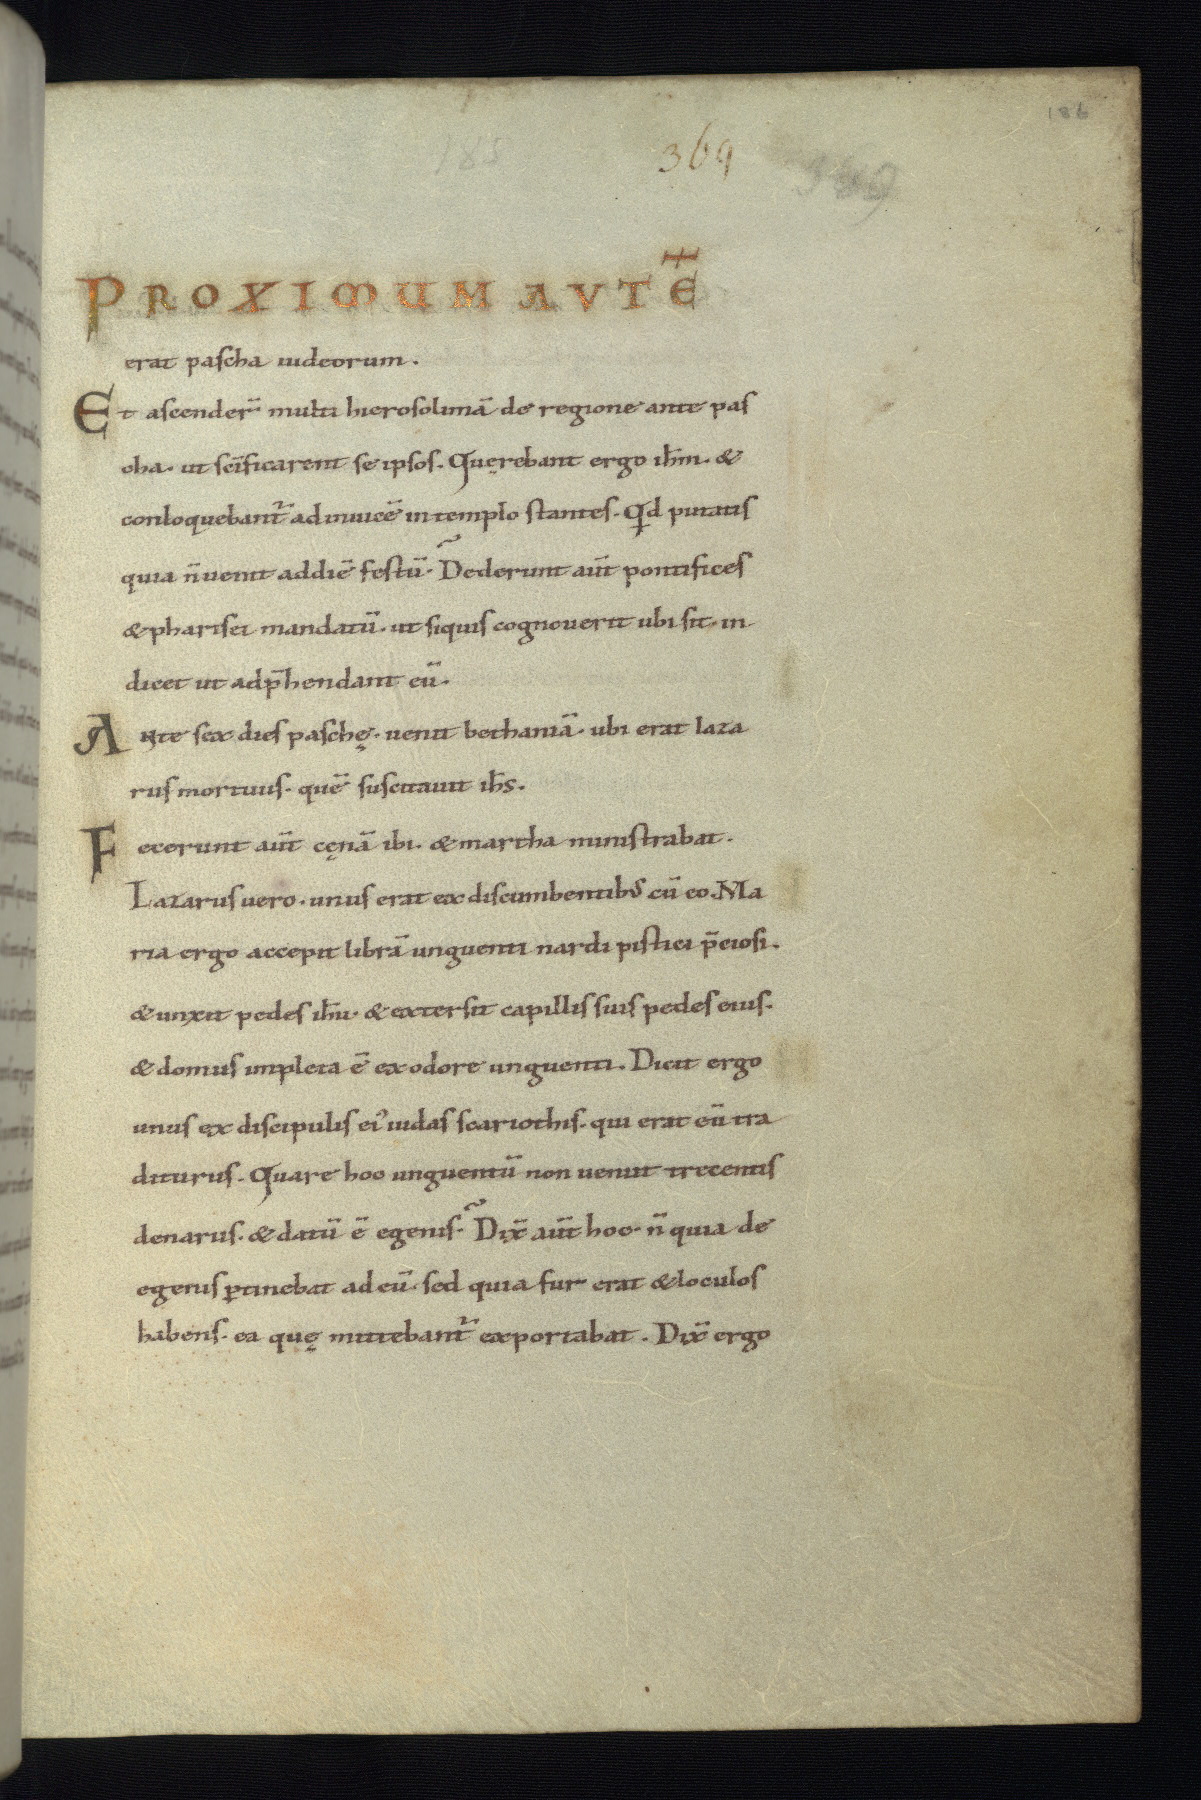 186
185 369 369
PROXIMUM AVTE̅
erat pascha iudeorum.
Et ascender̅ multi hierosolima̅ de regione ante pas
cha. ut sc̅ificarent se ipsos. Querębant ergo ih̅m. &
conloquebant᷑ adinuice̅ in templo stantes. Qd̅ putatis
quia n̅ uenit addie̅ festu̅. Dederunt aut̅ pontifices
& pharisei mandatu̅. ut siquis cognouerit ubi sit. in
dicet ut adp̅hendant eu̅.
Ante sex dies paschę. uenit bethania̅. ubi erat laza
rus mortuus. que̅ suscitauit ih̅s.
Fecerunt aut̅ cęna̅ ibi. & martha ministrabat.
Lazarus uero. unus erat ex discumbentib; cu̅ eo. Ma
ria ergo accepit libra̅ unguenti nardi pistici p̅ciosi.
& unxit pedes ih̅u. & extersit capillis suis pedes eius.
& domus impleta e̅ ex odore unguenti. Dicit ergo
unus ex discipulis ei᾿ iudas scariothis. qui erat eu̅ tra
diturus. Quare hoc unguentu̅ non uenut trecentis
denarus. & datu̅ e̅ egenis. Dix̅ aut̅ hoc. n̅ quia de
egenis ꝑtinebat ad eu̅. sed quia fur erat & loculos
habens. ea quę mittebant᷑ exportabat. Dix̅ ergo